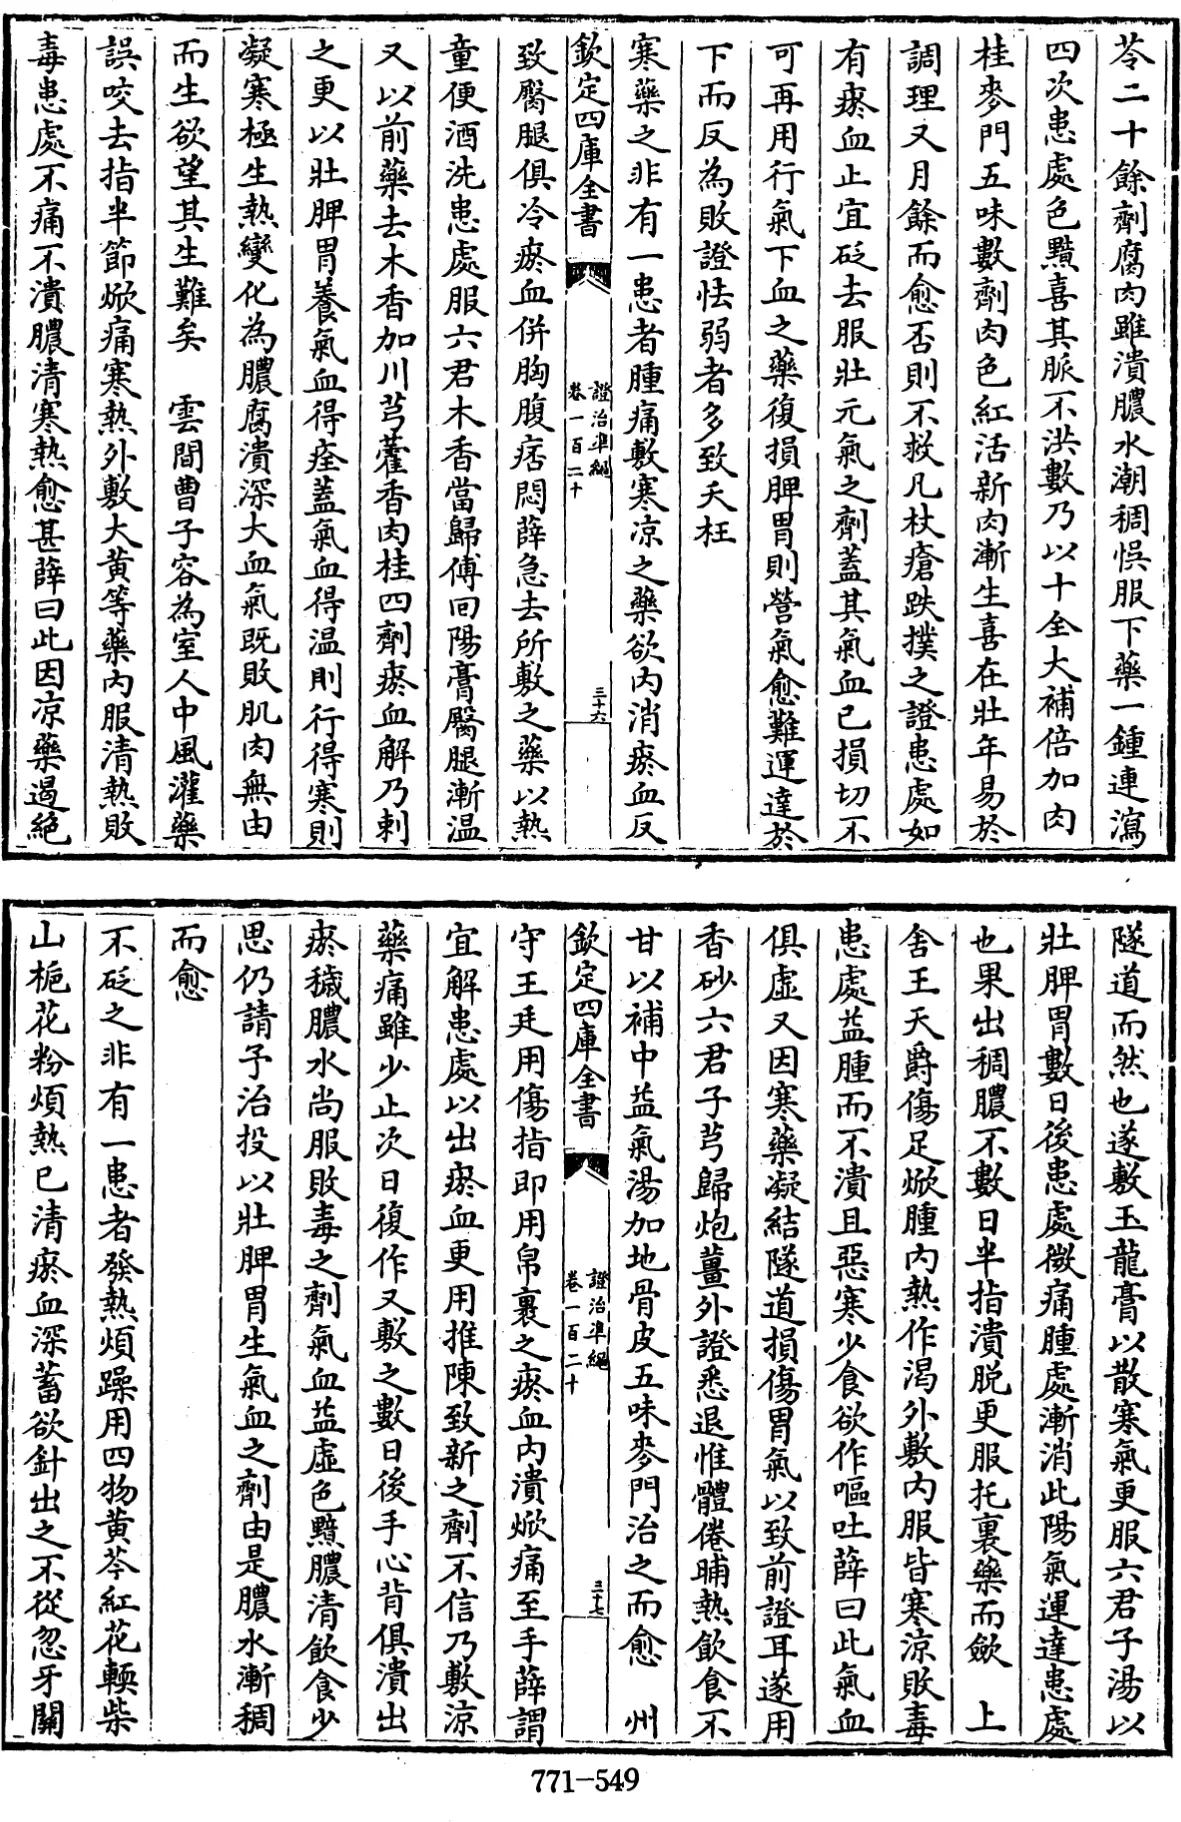 苓二十餘劑腐肉雖潰膿水潮稠悞服下藥一鍾連瀉
四次患處色黯喜其脈不洪數乃以十全大補倍加肉
桂麥門五味數劑肉色紅活新肉漸生喜在壯年易於
調理又月餘而愈否則不救凡杖瘡跌撲之證患處如
有瘀血止宜砭去服壯元氣之劑蓋其氣血已損切不
可再用行氣下血之藥復損脾胃則營氣愈難運達於
下而反為敗證怯弱者多致夭枉
寒藥之非有一患者腫痛敷寒凉之藥欲内消瘀血反
欽定四庫全書
證治準繩
卷一百二十
三十六
致臀腿俱冷瘀血併胸腹痞悶薛急去所敷之藥以熱
童便酒洗患處服六君木香當歸傅回陽膏臀腿漸温
又以前藥去木香加川芎藿香肉桂四劑瘀血解乃刺
之更以壯脾胃養氣血得痊蓋氣血得温則行得寒則
凝寒極生熱變化為膿腐潰深大血氣既敗肌肉無由
而生欲望其生難矣　雲間曹子容為室人中風灌藥
誤咬去指半節焮痛寒熱外敷大黄等藥内服清熱敗
毒患處不痛不潰膿清寒熱愈甚薛曰此因凉藥遏絶
隧道而然也遂敷玉龍膏以散寒氣更服六君子湯以
壯脾胃數日後患處微痛腫處漸消此陽氣運達患處
也果出稠膿不數日半指潰脱更服托裏藥而斂　上
舍王天爵傷足焮腫内熱作渴外敷内服皆寒凉敗毒
患處益腫而不潰且惡寒少食欲作嘔吐薛曰此氣血
俱虚又因寒藥凝結隧道損傷胃氣以致前證耳遂用
香砂六君子芎歸炮薑外證悉退惟體倦晡熱飲食不
甘以補中益氣湯加地骨皮五味麥門治之而愈　州
欽定四庫全書
證治準繩
卷一百二十
三十七
守王廷用傷指即用帛裹之瘀血内潰焮痛至手薛謂
宜解患處以出瘀血更用推陳致新之劑不信乃敷凉
藥痛雖少止次日復作又敷之數日後手心背俱潰出
瘀穢膿水尚服敗毒之劑氣血益虚色黯膿清飲食少
思仍請予治投以壯脾胃生氣血之劑由是膿水漸稠
而愈
不砭之非有一患者發熱煩躁用四物黄芩紅花輭柴
山梔花粉煩熱已清瘀血深蓄欲針出之不從忽牙關
771-549